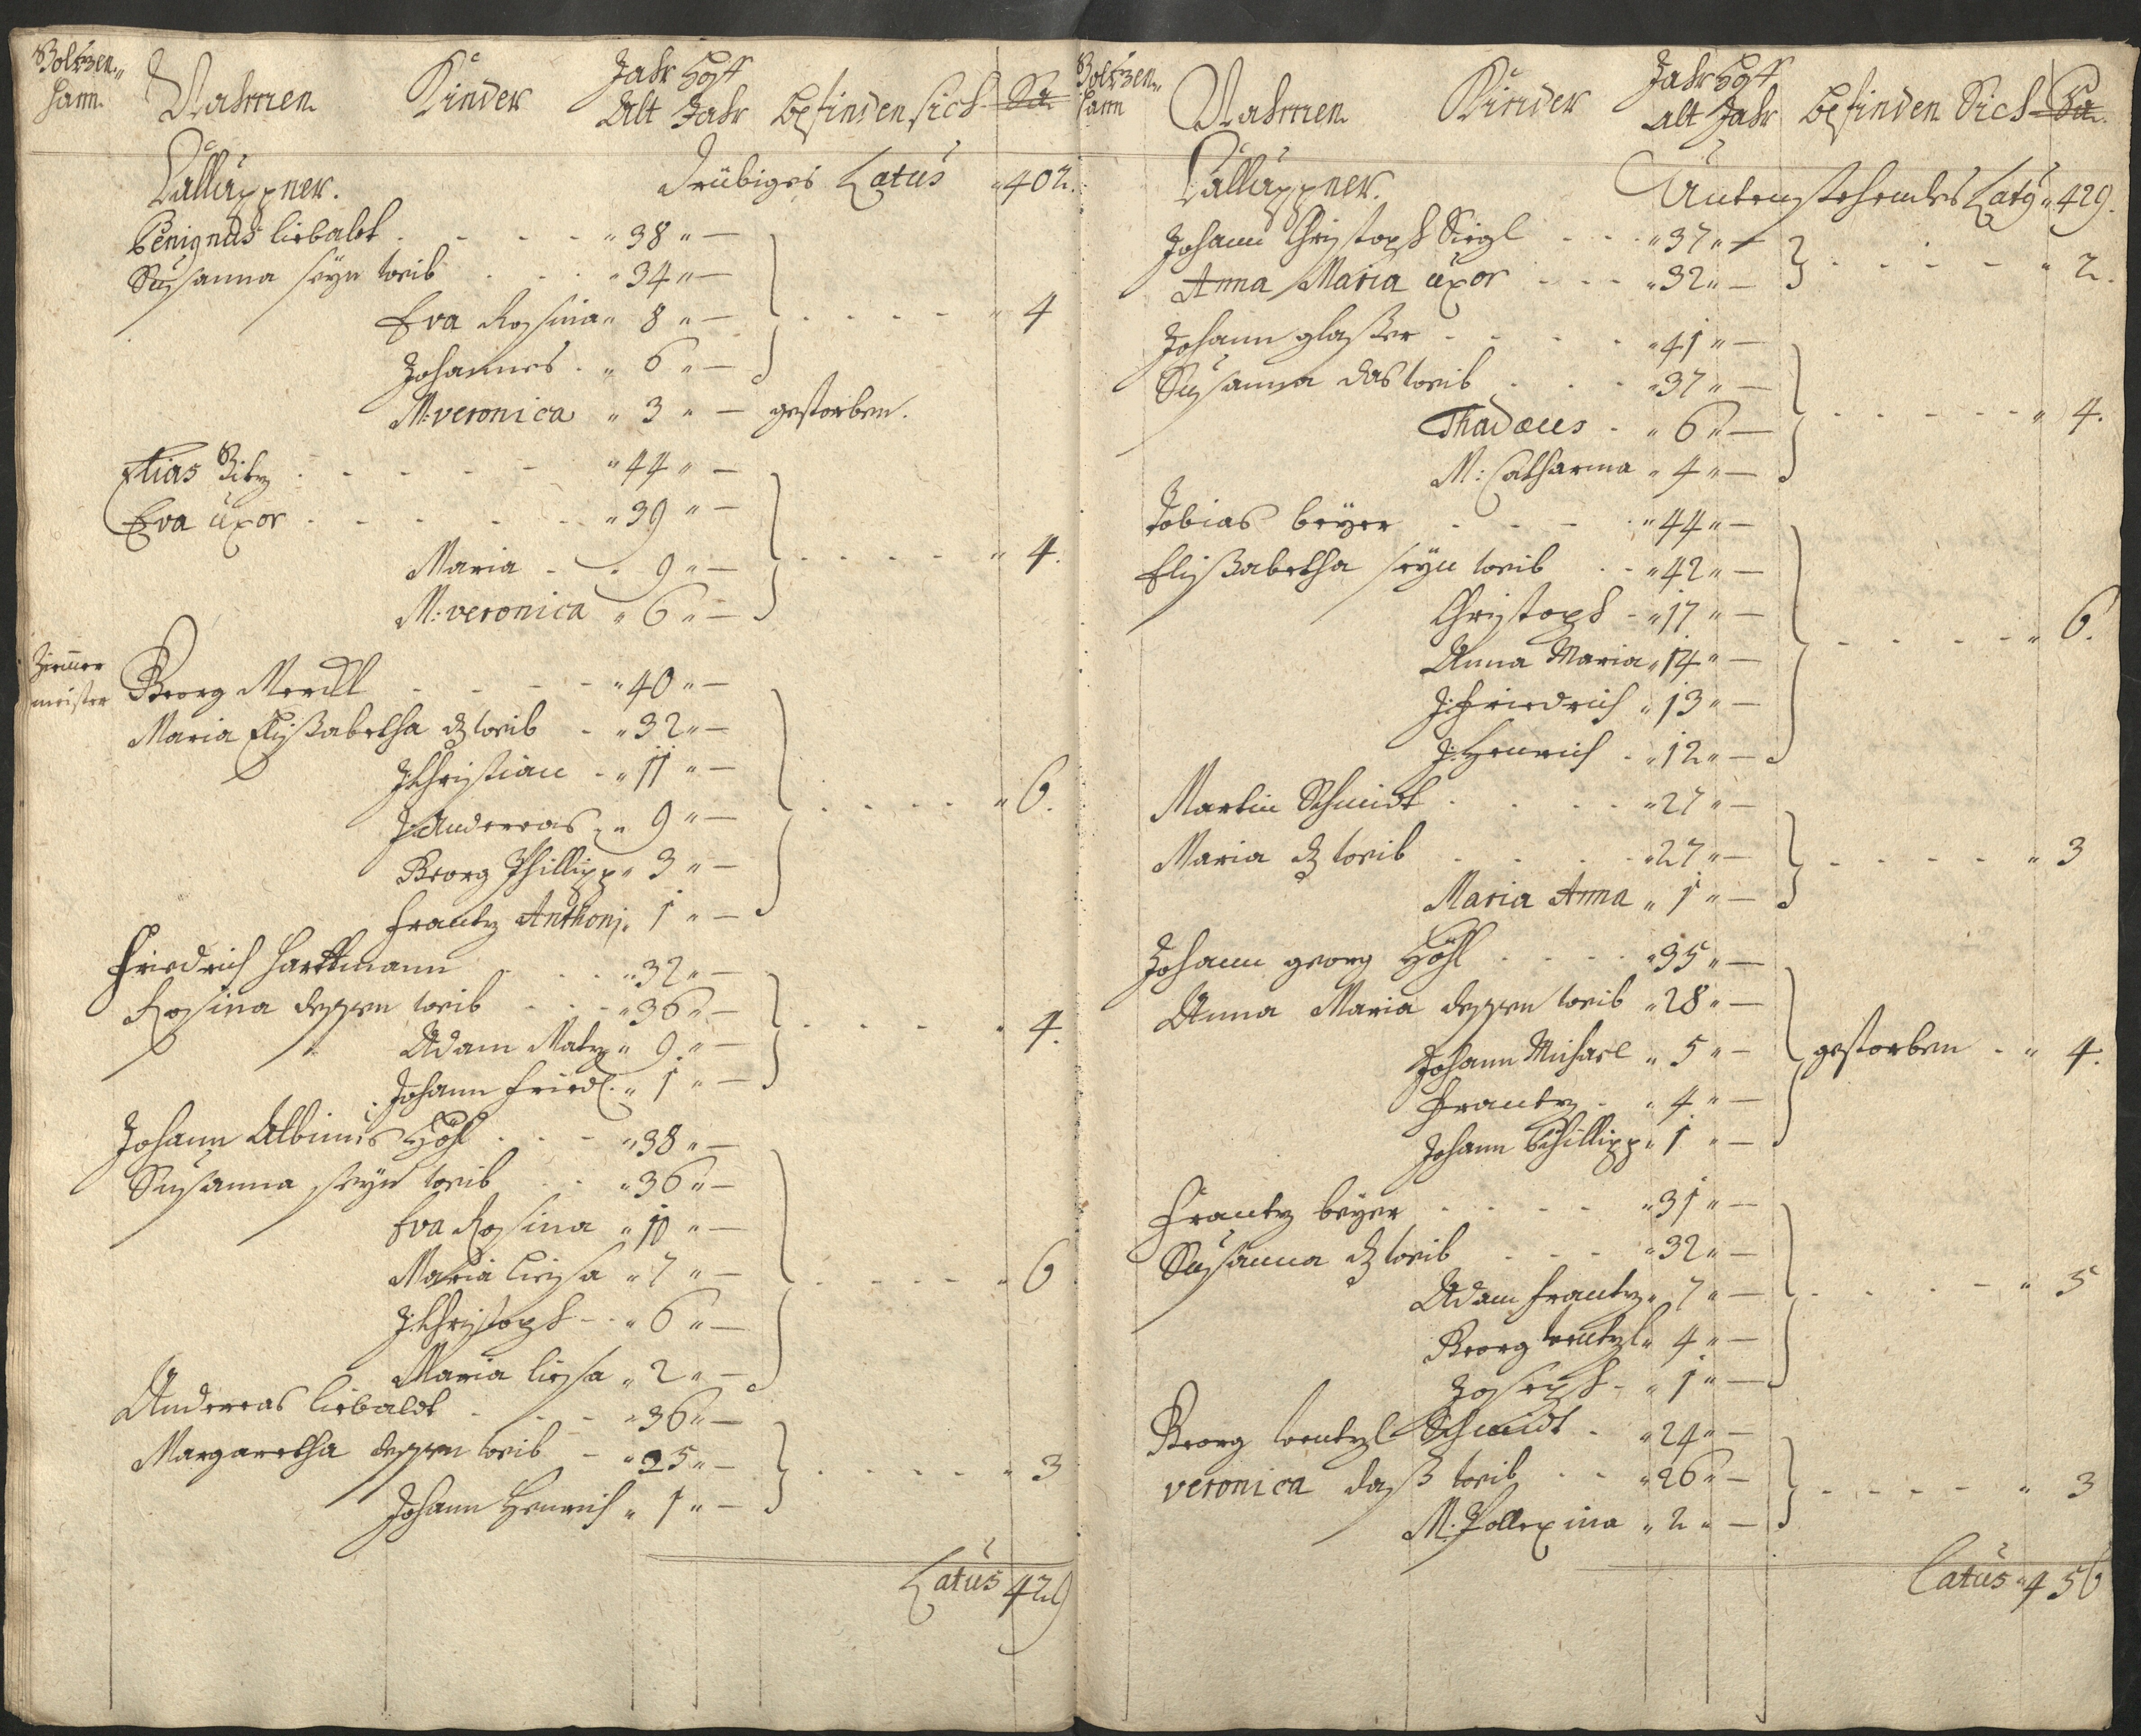 Boltzen-
hann. Nahmen Kinder Jahr Hoff
Alt Jahr befinden sich Sa.
Calluppner. Drübiges Latus 402.
Benignus liebaldt . 38 —
Susanna seyn weib 34 —
Eva Rosina 8 —
Johannes 6 — 4
M: veronica 3 — gestorben.
Elias 44 —
Eva uxor 39 —
Maria 9 — 4.
M: veronica 6 —
Zimer
meister Georg Merckl 40 —
Maria Elisabetha dz weib 32 —
J: Christian 11 —
J: Andreas 9 — 6.
Georg Phillipp 3 —
frantz Anthonj 1 —
Friedrich Harttmann 32 —
Rosina dessen weib 36 —
Adam Matz 9 — 4.
Johann fridl. 1 —
Johann Albinus Höhl 38 —
Susanna seyn weib 36 —
Eva Rosina 10 —
Maria liesa 7 — 6
J: Christoph 6 —
Maria liesa 2 —
Andreas liebaldt 36 —
Margaretha dessen weib 25 —
Johann Henrich 1 — 3
Latus 429
Boltzen-
hann Nahmen Kinder Jahr Hoff
alt Jahr befinden Sich Sa.
Calluppner. Untenstehendes Latus 429.
Johann Christoph Siegl 37 —
Anna Maria uxor 32 — 2.
Johann glaßer 41 —
Susanna das weib 37 —
Thadæus 6 — 4.
M: Catharina 4 —
Tobias beyer 44 —
Elisabetha seyn weib 42 —
Christoph 17 —
Anna Maria 14 — 6.
J: friedrich 13 —
J: Henrich 12 —
Martin Schmidt 27 —
Maria dz weib 27 — 3
Maria Anna 1 —
Johann georg Höhl 35 —
Anna Maria dessen weib 28 —
Johann Michael 5 — gestorben 4.
Frantz 4 —
Johann Phillipp 1 —
Frantz beyer 31 —
Susanna dz weib 32 —
Adam frantz 7 — 5
Georg wentzl 4 —
Joseph 1 —
Georg wentzl Schmidt 24 —
veronica daß weib 26 — 3
M: Pollexina 2 —
Latus 456